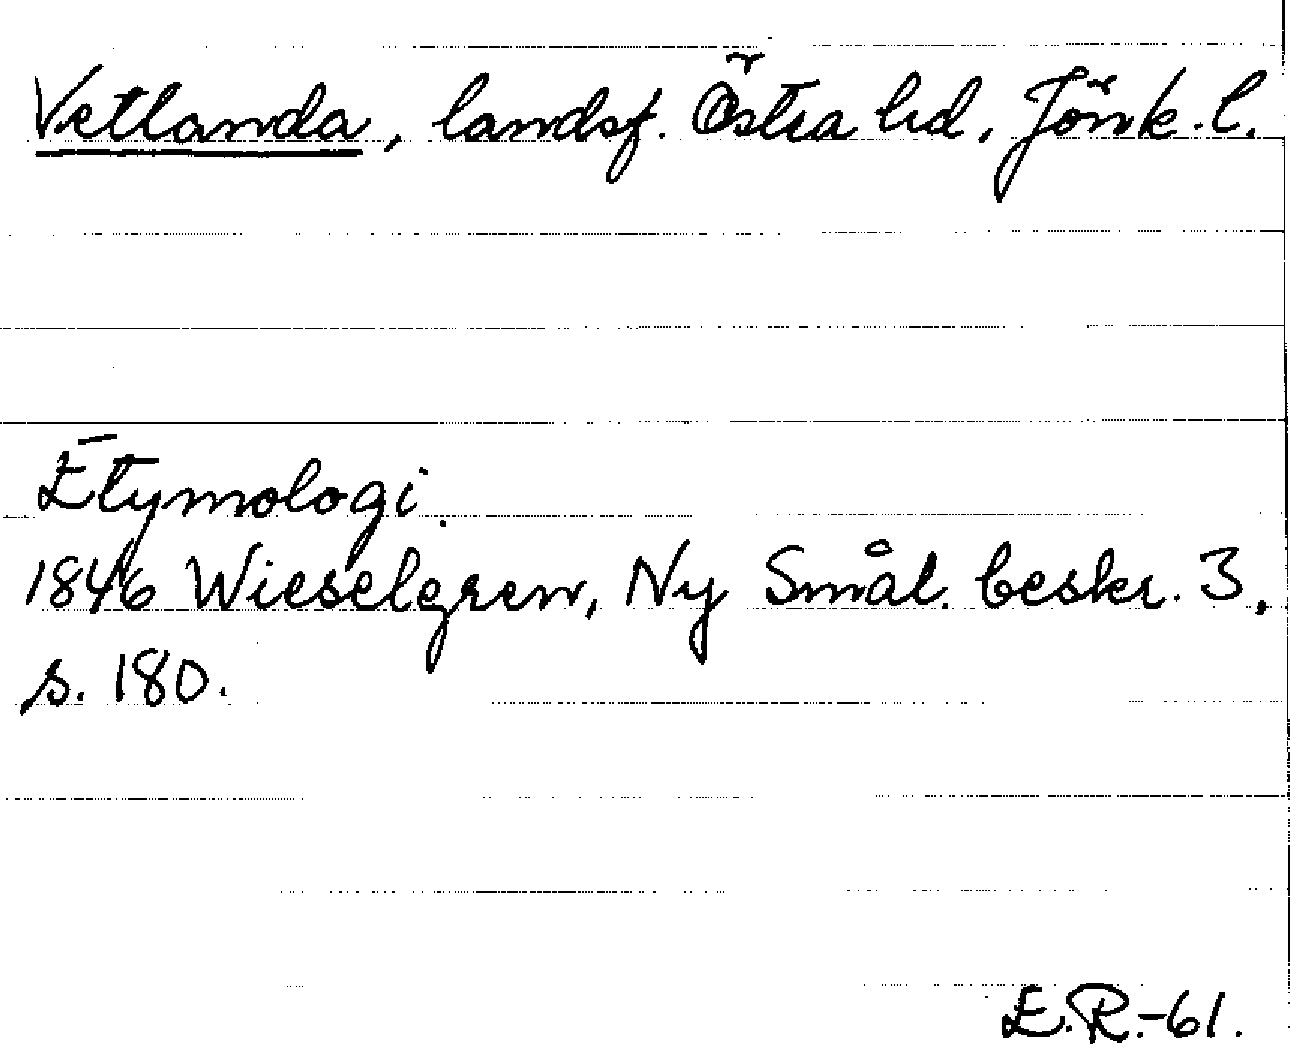 Vetlanda, landsf. Östra hd, Jönk. l.
Etymologi.
1846 Wieselgren, Ny Smål. beskr. 3,
s. 180.
E.R.-61.